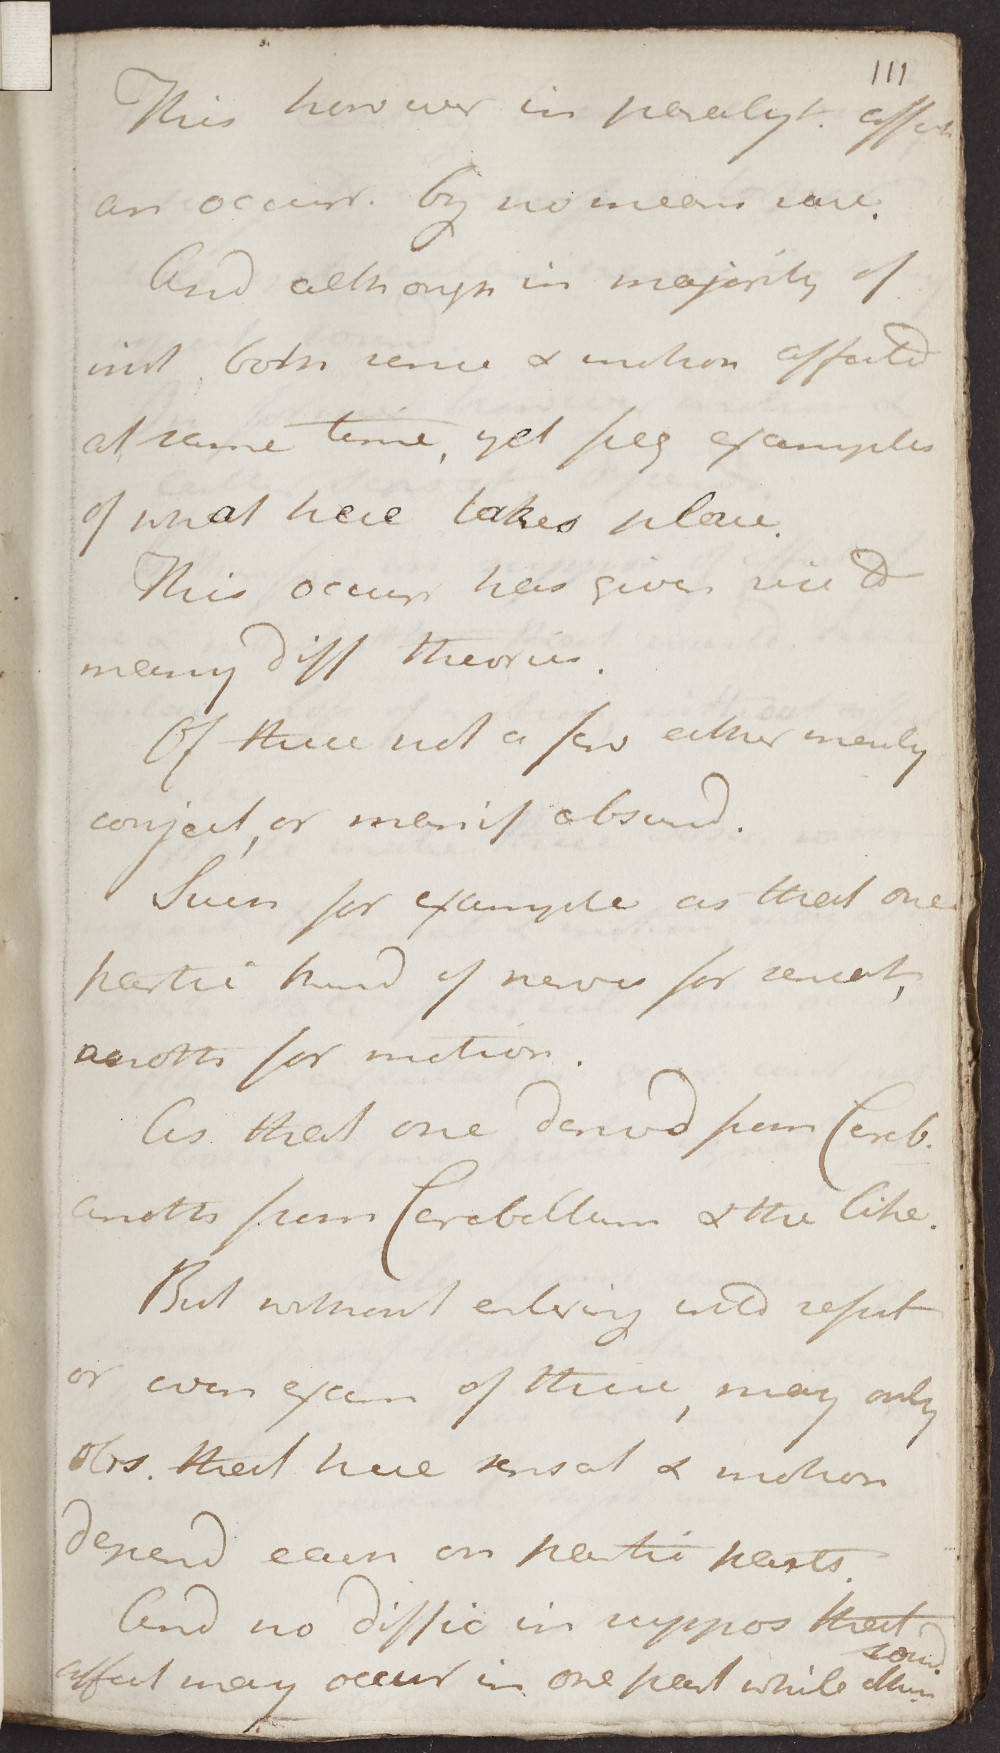 111
This however in paralyt. affect
an occurr. by no means rare.
And although in majority of
inst both sense & motion affected
at same time, yet freq examples
of what here takes place.
This occurr has given rise to
many diff theories.
Of these not a few either merely
conject, or manif absurd.
Such for example as that one
partic kind of nerves for sensat,
another for motion.
As that one derived from Cereb.
another from Cerebellum & the like.
But without entering into refut
or even exam of these, may only
obs. that here sensat & motion
depend each on partic parts.
And no diffic in suppos that
affect may occur in one part while other
sound.